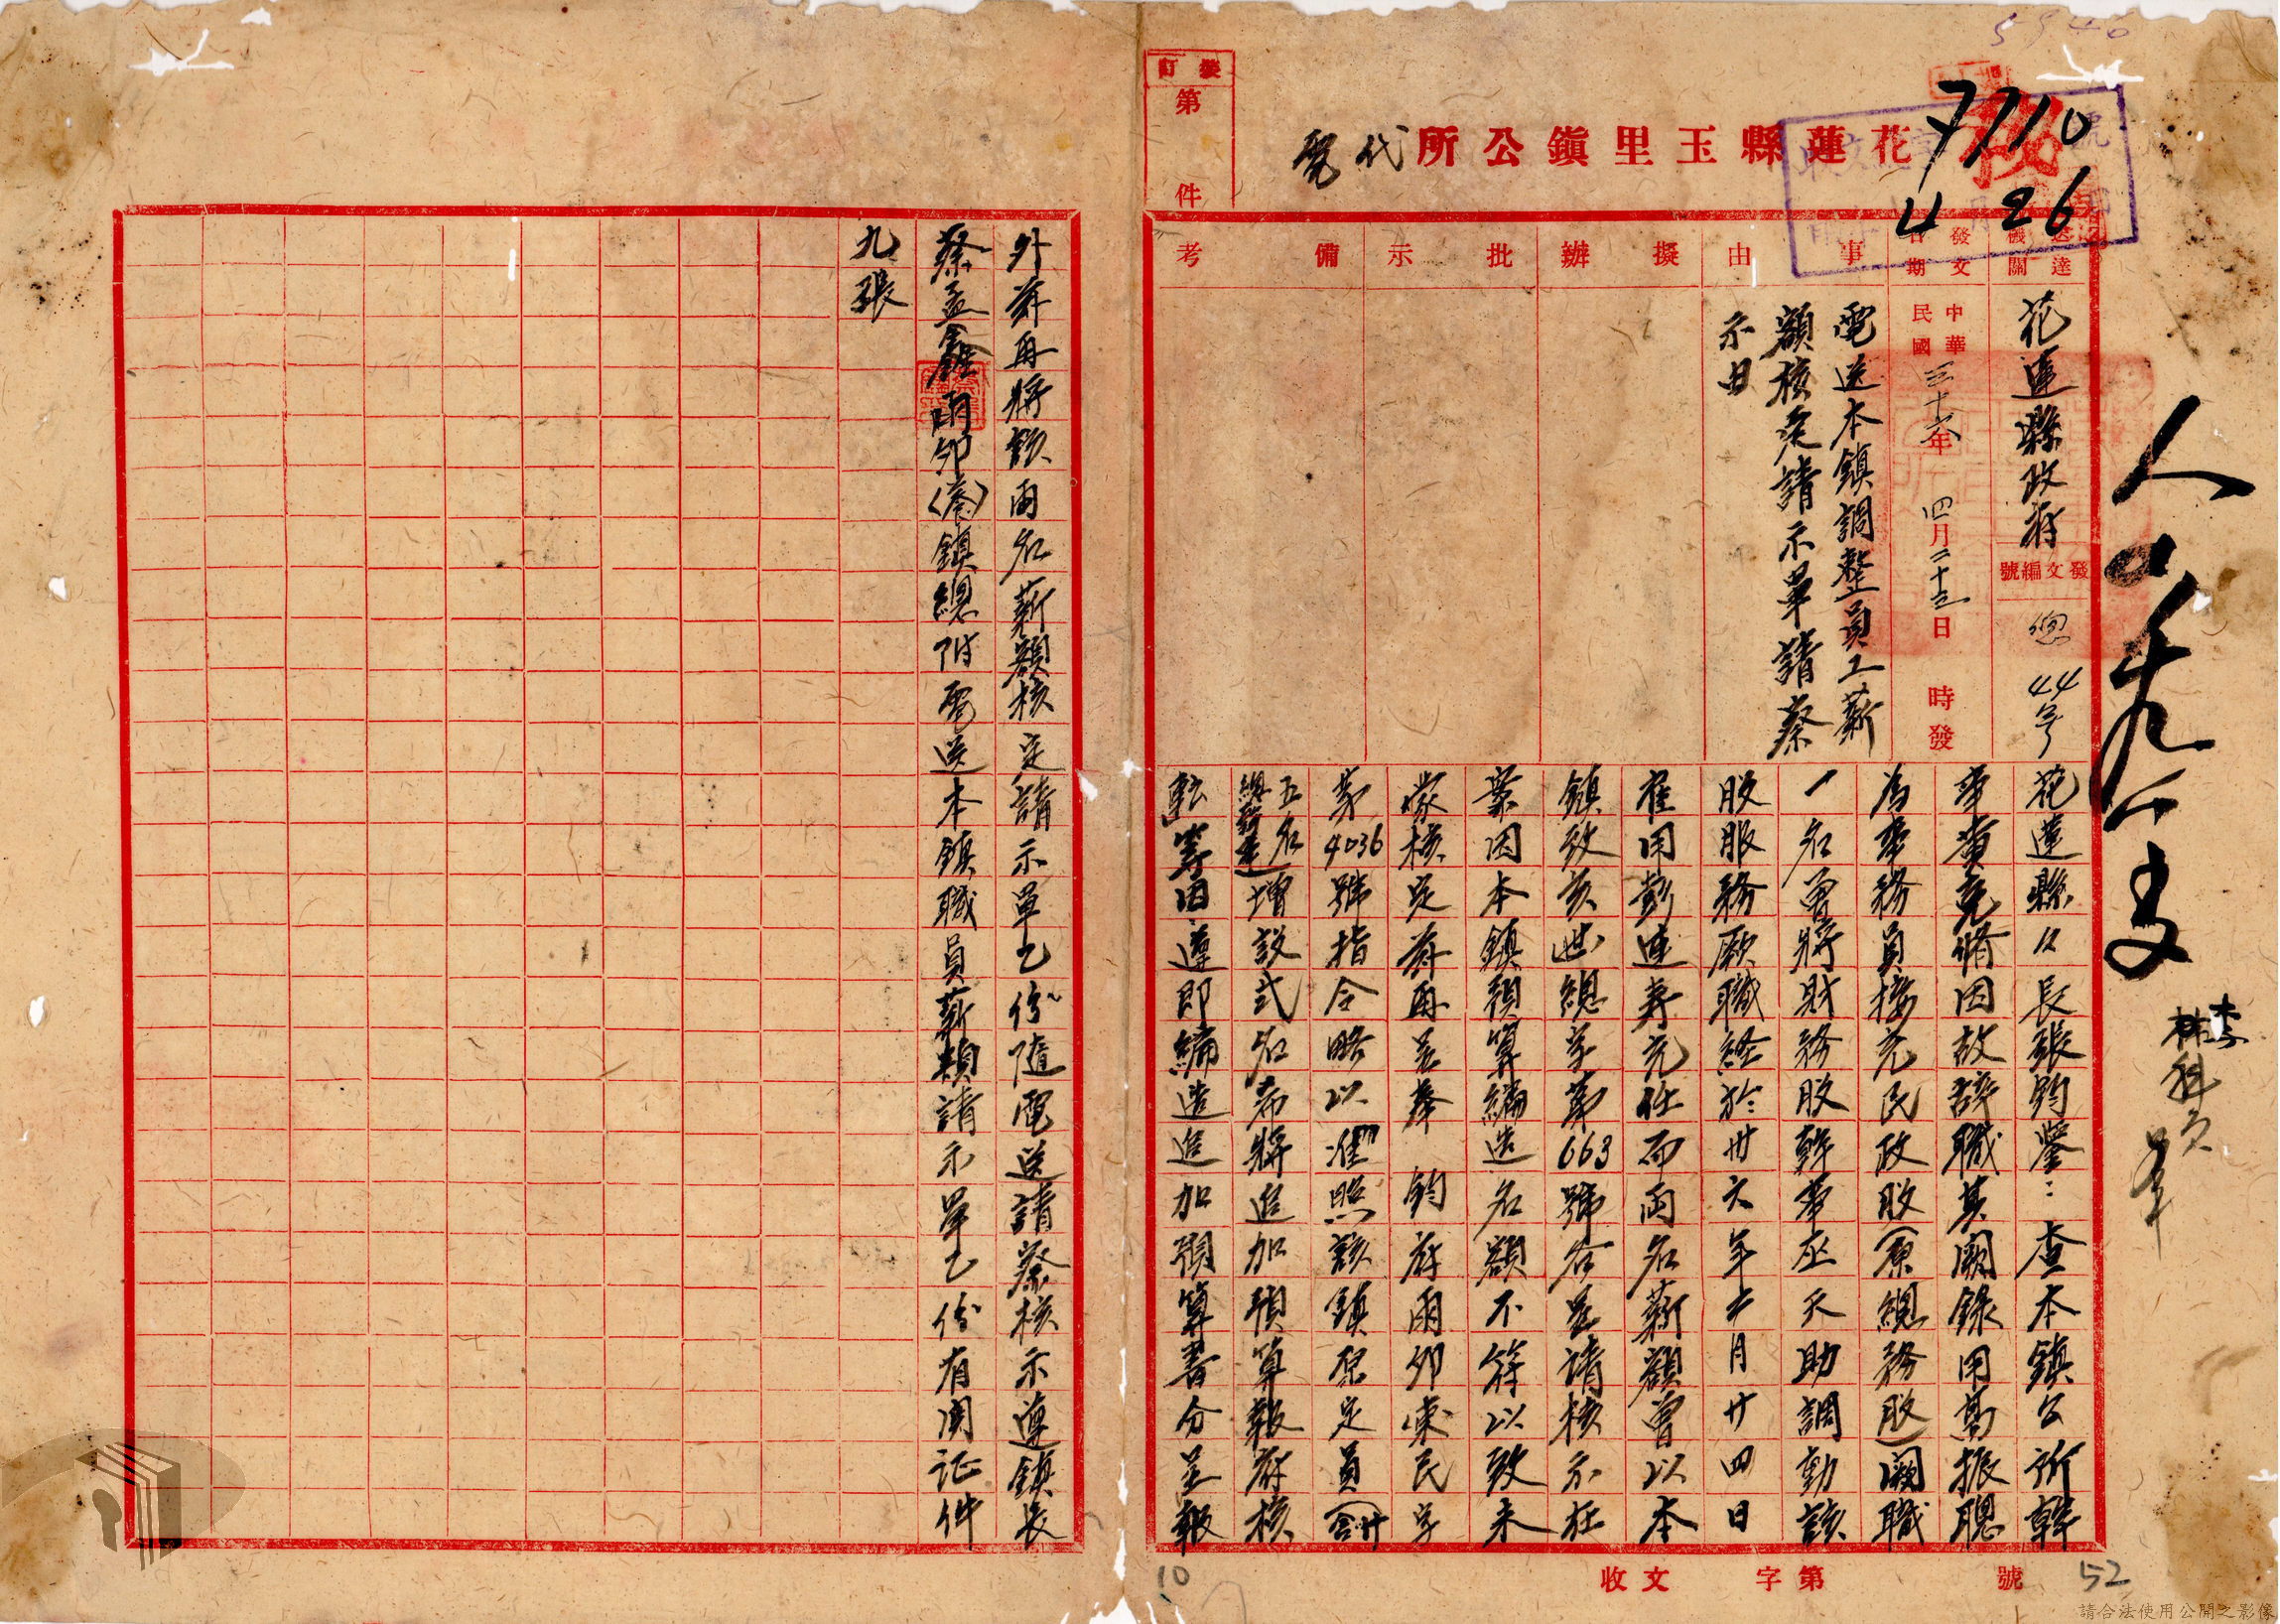 5946
7710
4 26
秘
裝訂
第
件
花蓮縣玉里鎮公所代電
送達機關
花蓮縣政府
發文編號
總 44 字
發文日期
中華民國三十六年四月二十三日 時發
事由
電送本鎮調整員工薪
額核定請示單請察
示由
擬辦
批示
備考
花蓮縣縣長張鈞鑒：查本鎮公所幹
事黃克脩因故辞職其闕錄用萬振聰
為事務員接充民政股(原總務股)闕職
一名曾將財務股幹事巫天助調動該
股服務厥職経於卅六年十月廿四日
雇用彭連寿充任而両名薪額曾以本
鎮致亥世總字第663號咨呈請核示在
案因本鎮預算編造名額不符以致未
蒙核定茲再呈奉 鈞府雨卯東民字
第4036號指令略以准照該鎮原定員(合計廿
五名總幹事在)增設弍名希將追加預算報府核
転等因遵即編造追加預算書分呈報
外茲再將該両名薪額核定請示單乙份隨電送請察核示遵鎮長
蔡孟鑫雨卯(養)鎮總附電送本鎮職員薪額請示單乙份有関证件
九張
人
李
林科員
收文 字第 號
10
52
請合法使用公開之影像